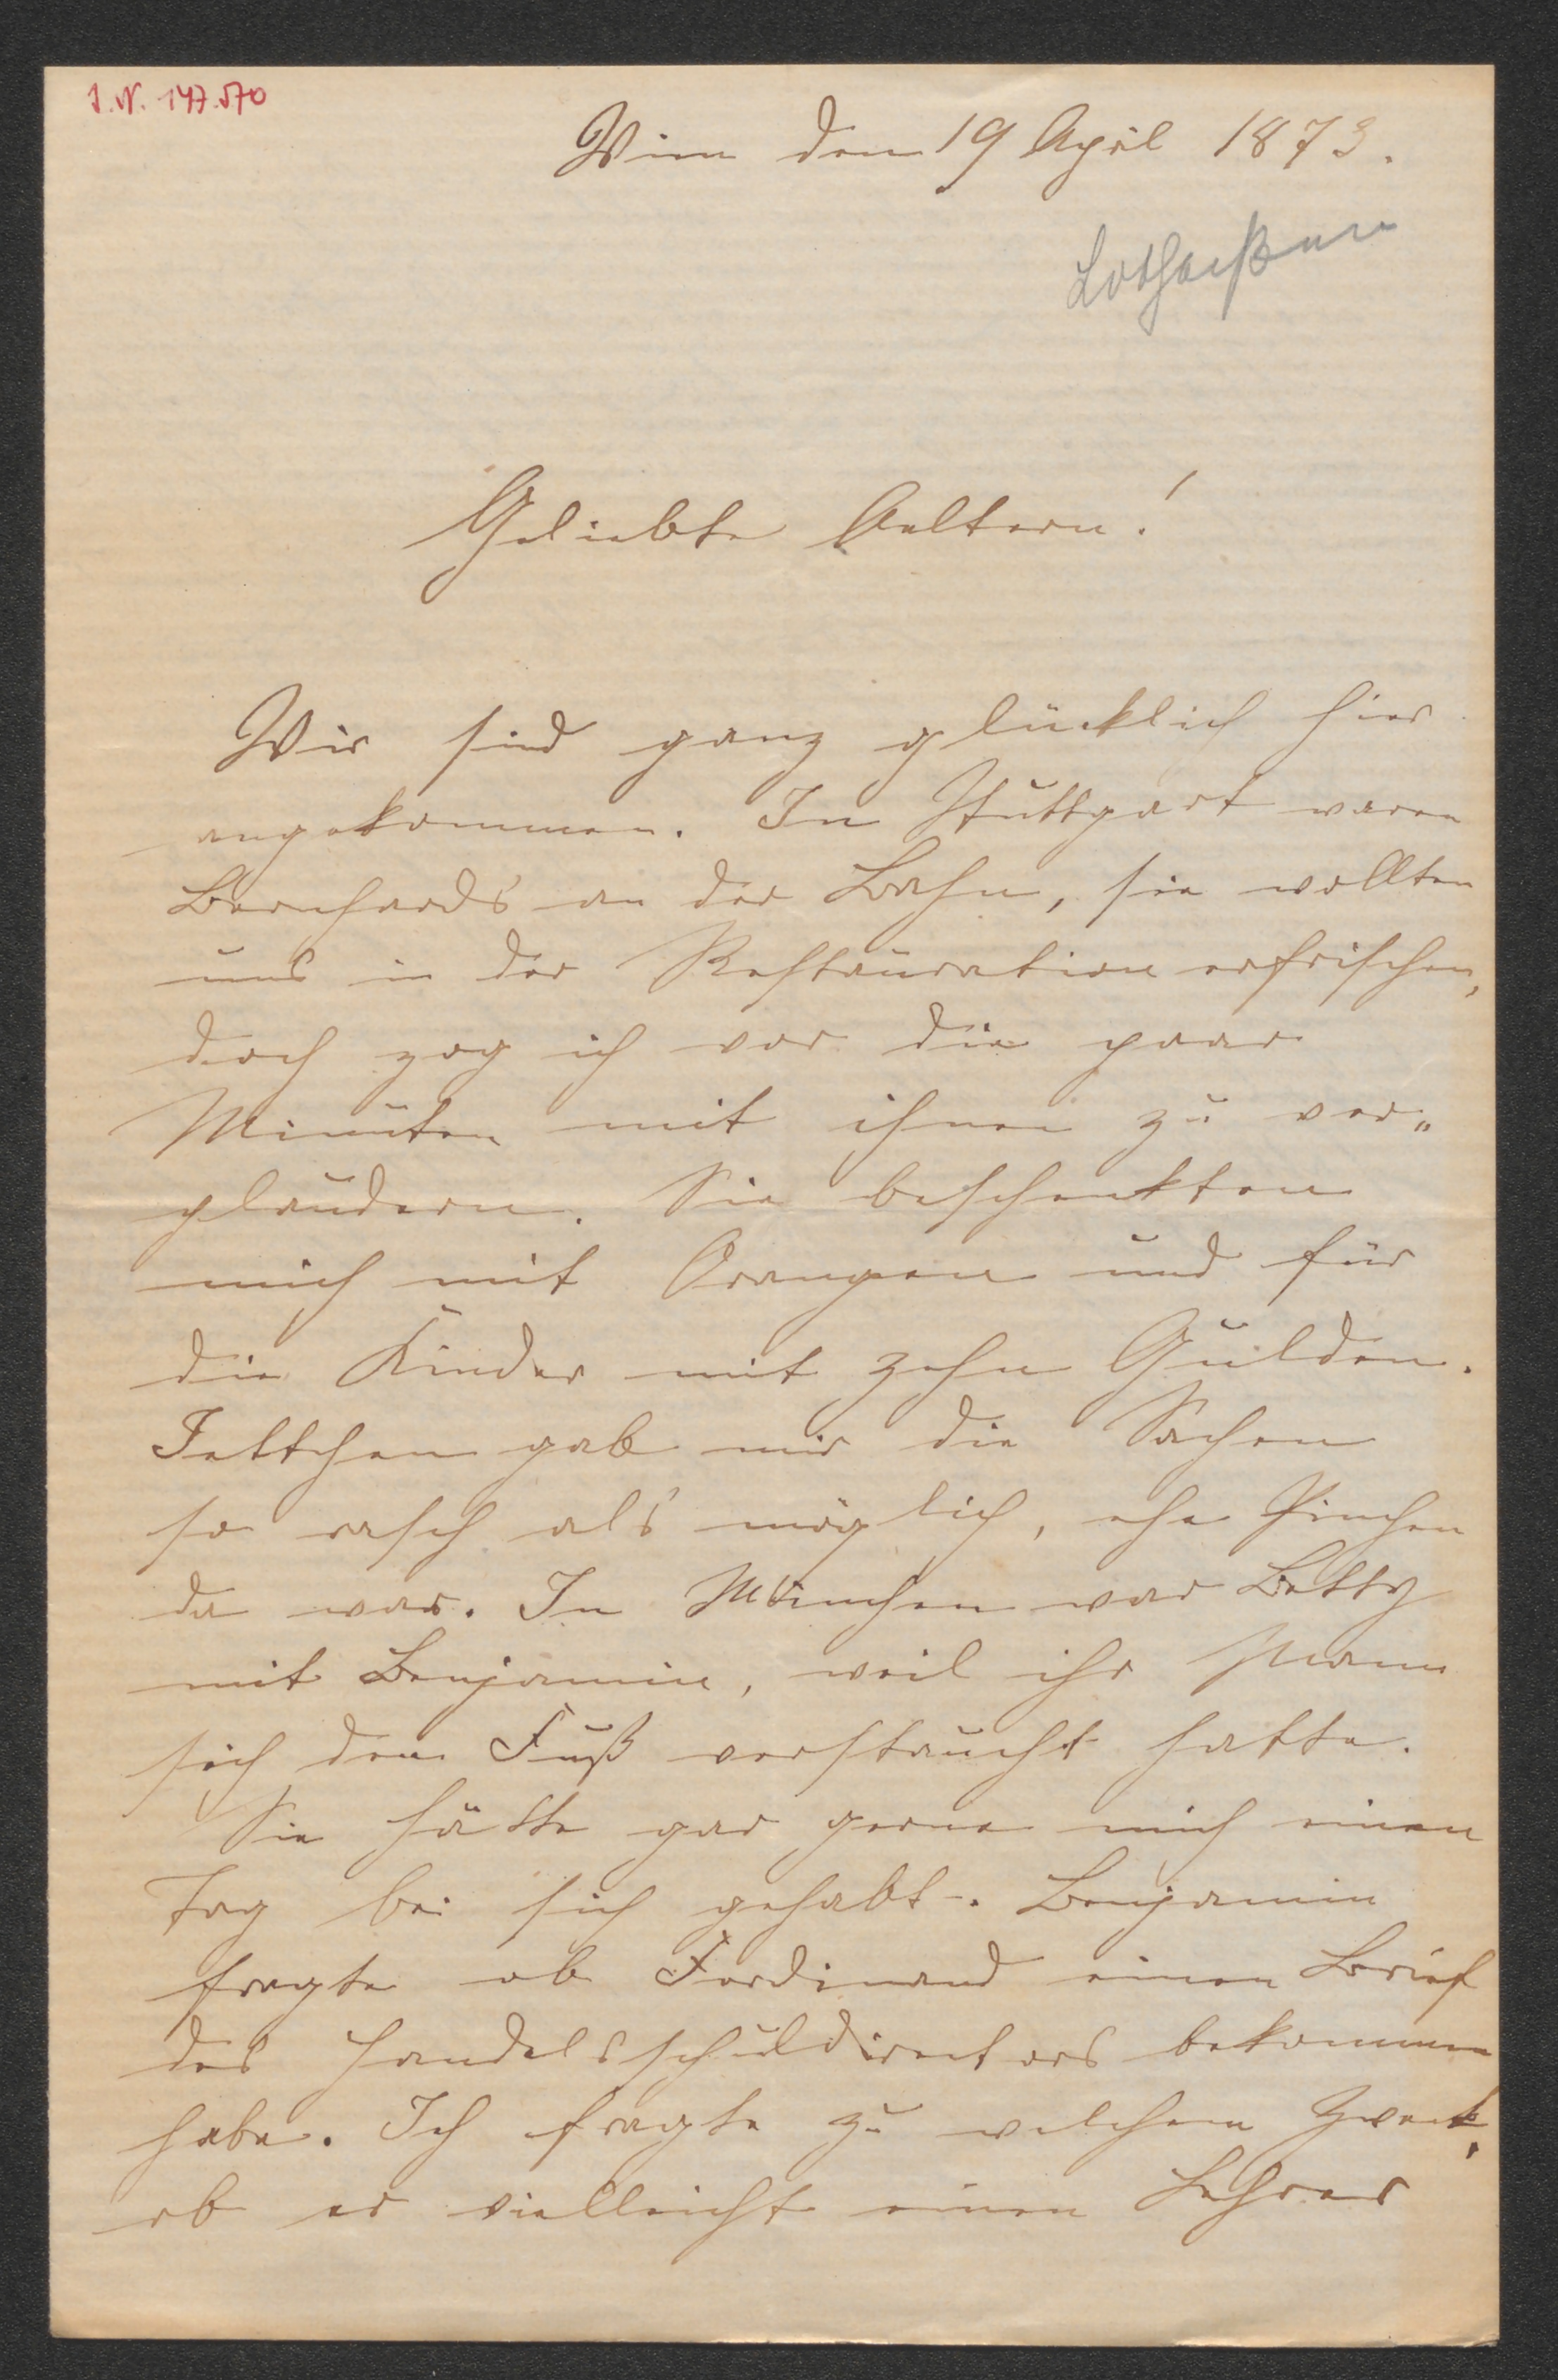 J. N. 147.570
Wien den 19 April 1873.
Lotheißen
Geliebte Aeltern!
Wir sind ganz glücklich hier
angekommen. In Stuttgart waren
Bernhards an der Bahn, sie wollten
uns in der Restauration erfrischen,
doch zog ich vor die paar
Minuten mit ihnen zu ver„
plaudern. Sie beschenkten
mich mit Orangen und für
die Kinder mit zehn Gulden.
Jettchen gab mir die Sachen
so rasch als möglich, ehe
da war. In München war Betty
mit Benjamin, weil ihr Mann
sich den Fuß verstaucht hatte.
Sie hätte gar gerne mich einen
Tag bei sich gehabt. Benjamin
fragte ob Ferdinand einen Brief
des Handelsschuldirectors bekommen
habe. Ich fragte zu welchem Zweck,
ob er vielleicht einen Lehrer